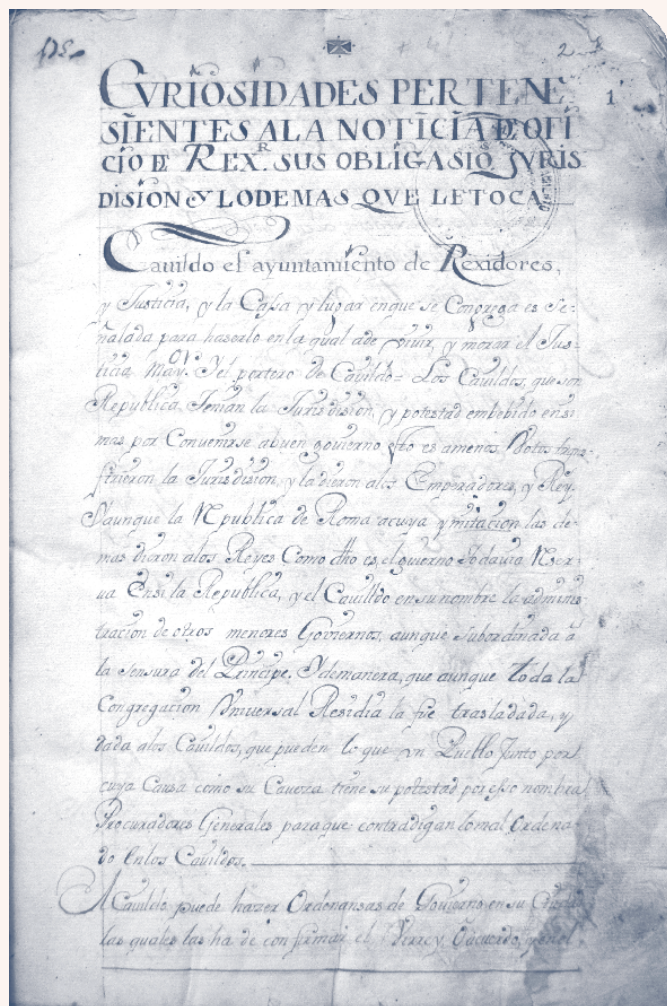 2
1
CVRIOSIDADES PERTENE
SIENTES ALA NOTICIA DE OFI
CIO DE REX.R SUS OBLIGASIO JURIS
DISION Y LODEMAS QVE LE TOCA.
Cauildo el ayuntamiento de Rexidores,
y Justicia, y la Cassa y lugar enque se Congrega es Se-
ñalada para haserlo en la qual a de viuir, y morar el Jus-
ticia May.or Y el portero de Cauildo= Los Cauildos, que son
Republica, Tenian la Jurisdision, y potestad embebido ensi
mas por Convenirse abuen govierno es amenos Botos trans-
firieron la Jurisdision, y la dieron alos Emperadores, y Rey.
Y aunque la Republica de Roma acuya ymitacion las de-
mas dieron alos Reyes Como dho es, el govierno Todauia Reser-
ua Ensi la Republica, y el Cauilldo en su nombre la adminis
tracion de otros menores Goviernos, aunque subordinada a
la sensura del Principe. Y demanera, que aunque toda la
Congregacion Vniuersal Residia la fue trasladada, y
dada alos Cauildos, que pueden lo que vn Pueblo Junto por
cuya Causa como su Caueza tiene su potestad, por esso nombra
Procuradores Generales para que contradigan lo mal Ordena
do En los Cauildos.
Al Cauildo puede hazer Ordenansas de Govierno en su
las quales las ha de confirmar el Virrey